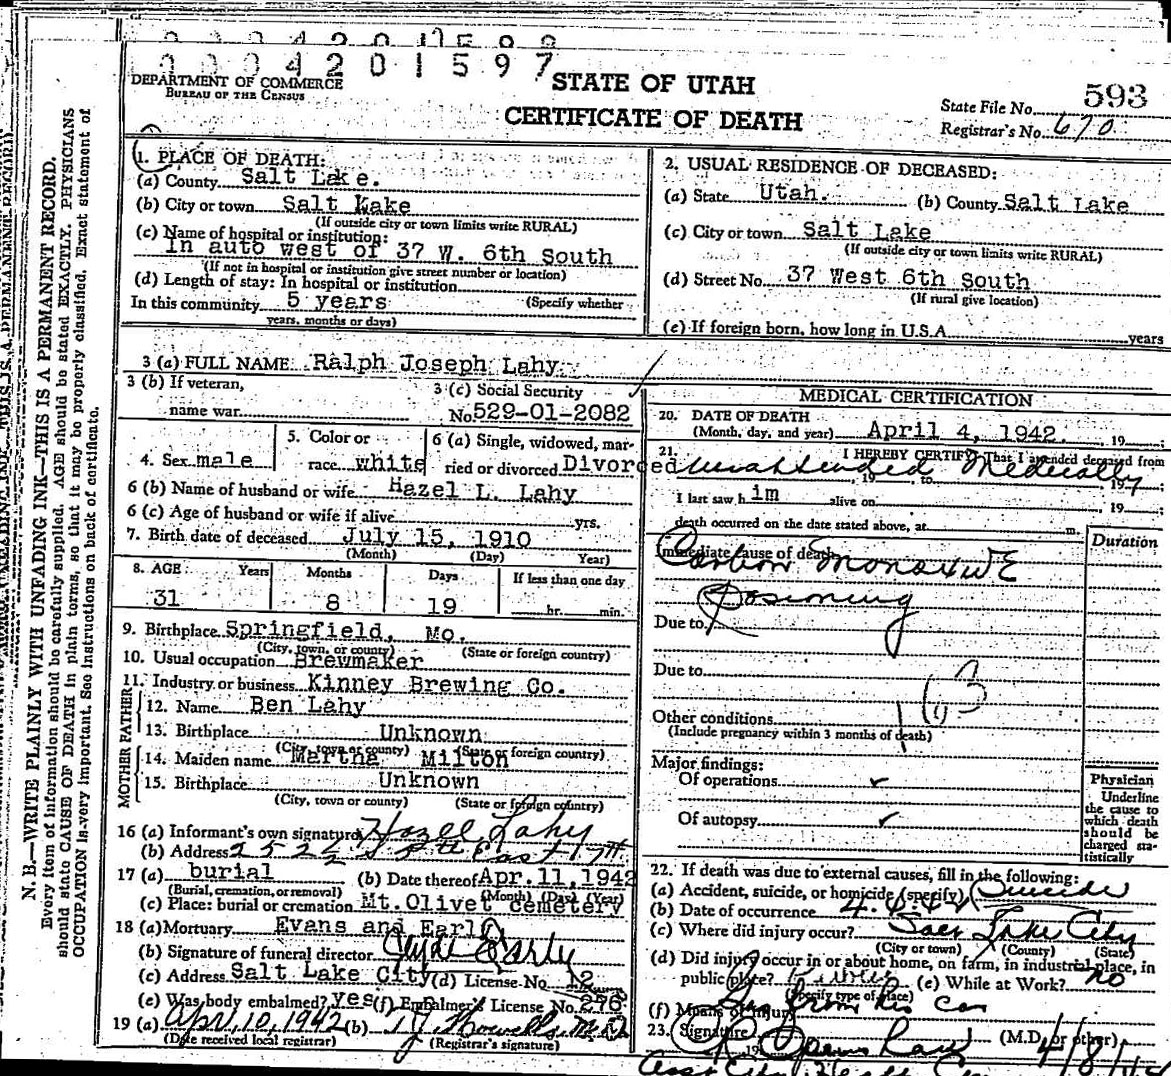 0004201597
DEPARTMENT OF COMMERCE
BUREAU OF THE CENSUS
STATE OF UTAH
CERTIFICATE OF DEATH
593
State File No.
Registrar's No. 670
N. B.—WRITE PLAINLY WITH UNFADING INK—THIS IS A PERMANENT RECORD.
Every item of information should be carefully supplied. AGE should be stated EXACTLY. PHYSICIANS
should state CAUSE OF DEATH in plain terms, so that it may be properly classified. Exact statement of
OCCUPATION is very important. See instructions on back of certificate.
1. PLACE OF DEATH:
(a) County Salt Lake.
(b) City or town Salt Lake
(If outside city or town limits write RURAL)
(c) Name of hospital or institution:
In auto west of 37 W. 6th South
(If not in hospital or institution give street number or location)
(d) Length of stay: In hospital or institution
In this community 5 years (Specify whether
years, months or days)
2. USUAL RESIDENCE OF DECEASED:
(a) State Utah. (b) County Salt Lake
(c) City or town Salt Lake
(If outside city or town limits write RURAL)
(d) Street No. 37 West 6th South
(If rural give location)
(e) If foreign born, how long in U.S.A. years
3 (a) FULL NAME Ralph Joseph Lahy
3 (b) If veteran,
name war
3 (c) Social Security
No. 529-01-2082
4. Sex male
5. Color or
race white
6 (a) Single, widowed, mar-
ried or divorced Divorced
6 (b) Name of husband or wife Hazel L. Lahy
6 (c) Age of husband or wife if alive yrs.
7. Birth date of deceased July 15, 1910
(Month) (Day) Year)
8. AGE Years Months Days If less than one day
31 8 19 hr. min.
9. Birthplace Springfield, Mo.
(City, town, or county) (State or foreign country)
10. Usual occupation Brewmaker
11. Industry or business Kinney Brewing Co.
FATHER
12. Name Ben Lahy
13. Birthplace Unknown
(City, town or county) (State or foreign country)
MOTHER
14. Maiden name Martha Milton
15. Birthplace Unknown
(City, town or county) (State or foreign country)
16 (a) Informant's own signature Hazel Lahy
(b) Address East
17 (a) burial (b) Date thereof Apr. 11, 1942
(Burial, cremation, or removal) (Month) (Day) (Year)
(c) Place: burial or cremation Mt. Olivet cemetery
18 (a) Mortuary Evans and Early
(b) Signature of funeral director Early
(c) Address Salt Lake City (d) License No. 12
(e) Was body embalmed? yes (f) Embalmer's License No. 276
19 (a) Apr, 10, 1942 (b) T J Howells M D
(Date received local registrar) (Registrar's signature)
MEDICAL CERTIFICATION
20. DATE OF DEATH
(Month, day, and year) April 4, 1942. 19
21. I HEREBY CERTIFY, That I attended deceased from
unattended Medically
19 to 19
I last saw h im alive on 19
death occurred on the date stated above, at m.
Duration
Immediate cause of death
Carbon Monoxide
Posioning
Due to
Due to
Other conditions
(Include pregnancy within 3 months of death)
Major findings:
Of operations
Of autopsy
Physician
Underline
the cause to
which death
should be
charged sta-
tistically
22. If death was due to external causes, fill in the following:
(a) Accident, suicide, or homicide (specify) Suicide
(b) Date of occurrence 4-4-42
(c) Where did injury occur? Salt Lake City
(City or town) (County) (State)
(d) Did injury occur in or about home, on farm, in industrial place, in
public place? (e) While at Work? no
(Specify type of place)
(f) Means of injury Gas from his car
23. Signature (M.D. or other)